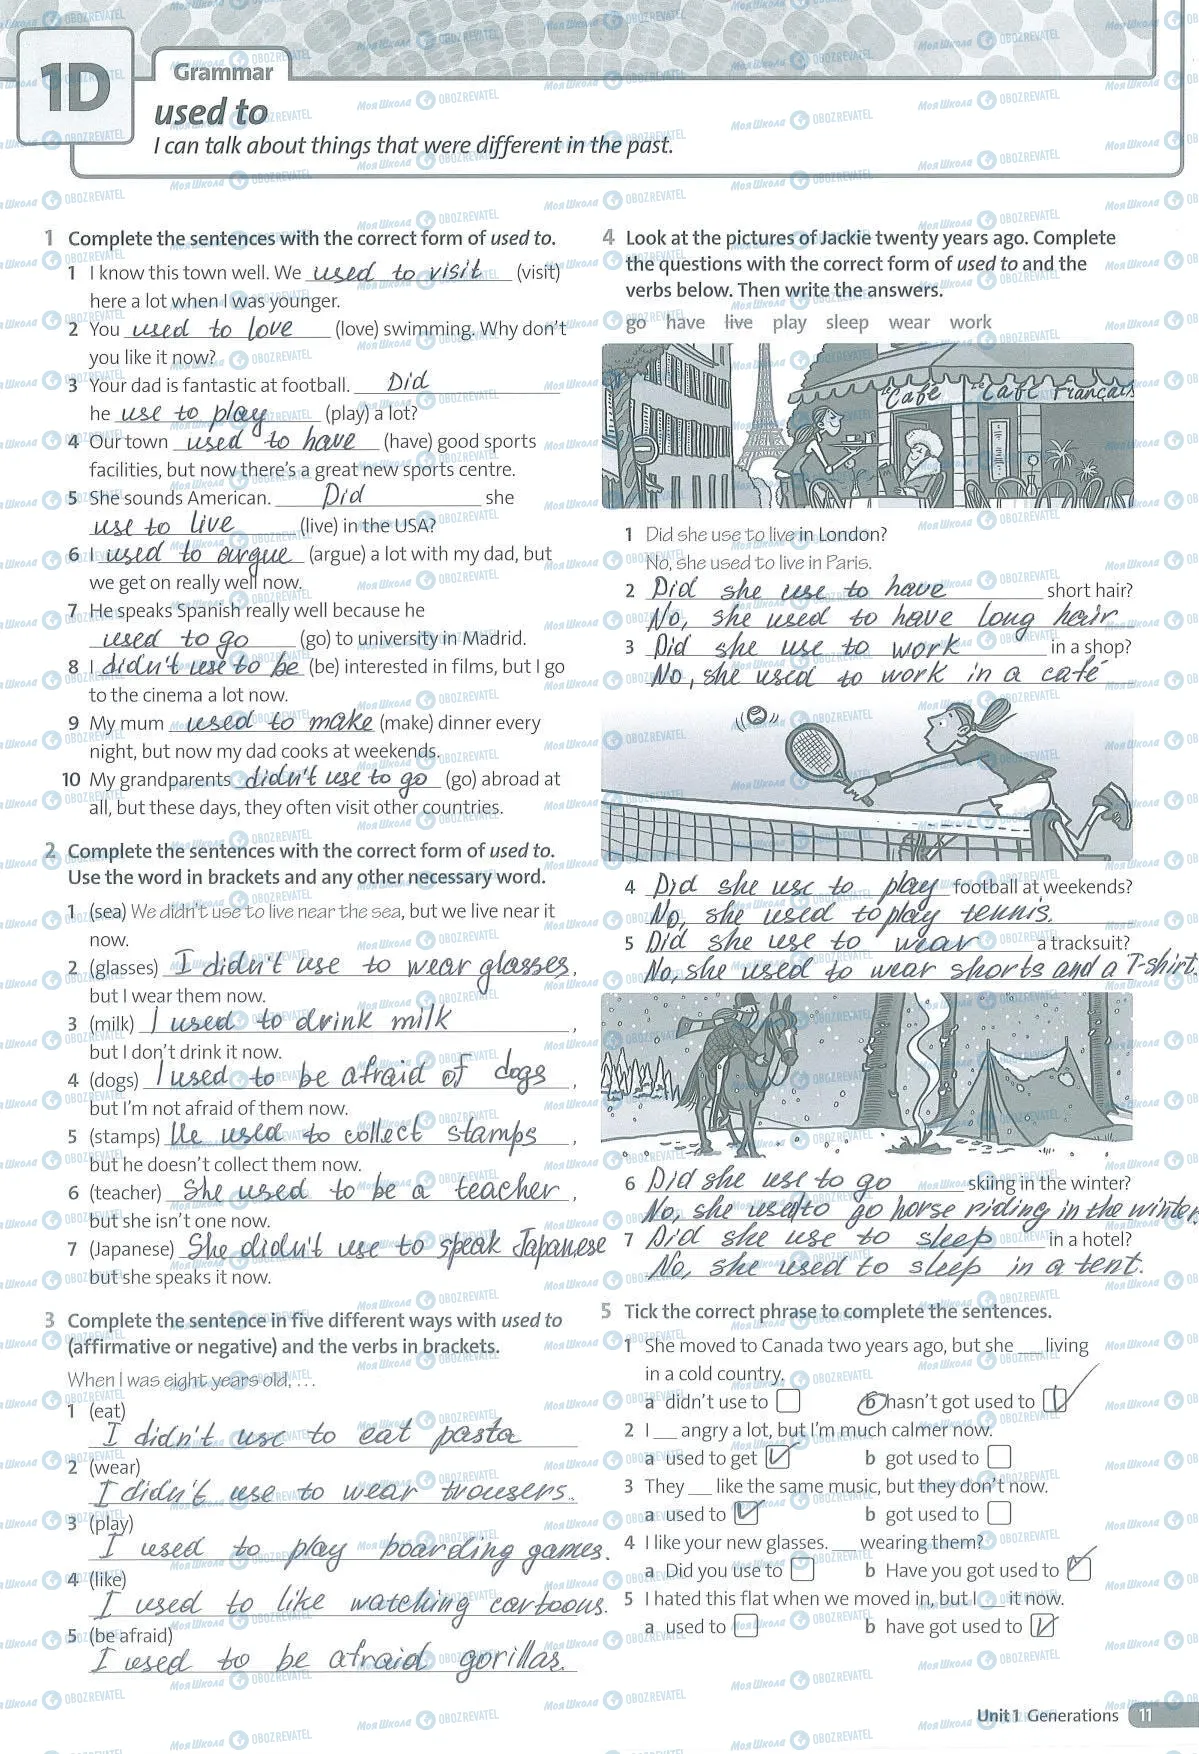 1D
Grammar
used to
I can talk about things that were different in the past.
1 Complete the sentences with the correct form of used to.
1 I know this town well. We used to visit (visit)
here a lot when I was younger.
2 You used to love (love) swimming. Why don't
you like it now?
3 Your dad is fantastic at football. Did
he use to play (play) a lot?
4 Our town used to have (have) good sports
facilities, but now there's a great new sports centre.
5 She sounds American. Did she
use to live (live) in the USA?
6 I used to argue (argue) a lot with my dad, but
we get on really well now.
7 He speaks Spanish really well because he
used to go (go) to university in Madrid.
8 I didn't use to be (be) interested in films, but I go
to the cinema a lot now.
9 My mum used to make (make) dinner every
night, but now my dad cooks at weekends.
10 My grandparents didn't use to go (go) abroad at
all, but these days, they often visit other countries.
2 Complete the sentences with the correct form of used to.
Use the word in brackets and any other necessary word.
1 (sea) We didn't use to live near the sea, but we live near it
now.
2 (glasses) I didn't use to wear glasses,
but I wear them now.
3 (milk) I used to drink milk ,
but I don't drink it now.
4 (dogs) I used to be afraid of dogs ,
but I'm not afraid of them now.
5 (stamps) He used to collect stamps ,
but he doesn't collect them now.
6 (teacher) She used to be a teacher ,
but she isn't one now.
7 (Japanese) She didn't use to speak Japanese
but she speaks it now.
3 Complete the sentence in five different ways with used to
(affirmative or negative) and the verbs in brackets.
When I was eight years old, ...
1 (eat)
I didn't use to eat pasta
2 (wear)
I didn't use to wear trousers.
3 (play)
I used to play boarding games.
4 (like)
I used to like watching cartoons.
5 (be afraid)
I used to be afraid gorillas.
4 Look at the pictures of Jackie twenty years ago. Complete
the questions with the correct form of used to and the
verbs below. Then write the answers.
go have live play sleep wear work
le Café
le Café Français
1 Did she use to live in London?
No, she used to live in Paris.
2 Did she use to have short hair?
No, she used to have long hair
3 Did she use to work in a shop?
No, she used to work in a café
4 Did she use to play football at weekends?
No, she used to play tennis.
5 Did she use to wear a tracksuit?
No, she used to wear shorts and a T-shirt.
6 Did she use to go skiing in the winter?
No, she used to go horse riding in the winter.
7 Did she use to sleep in a hotel?
No, she used to sleep in a tent.
5 Tick the correct phrase to complete the sentences.
1 She moved to Canada two years ago, but she ___ living
in a cold country.
a didn't use to b hasn't got used to
2 I ___ angry a lot, but I'm much calmer now.
a used to get b got used to
3 They ___ like the same music, but they don't now.
a used to b got used to
4 I like your new glasses. ___ wearing them?
a Did you use to b Have you got used to
5 I hated this flat when we moved in, but I ___ it now.
a used to b have got used to
Unit 1 Generations 11
Моя Школа OBOZREVATEL